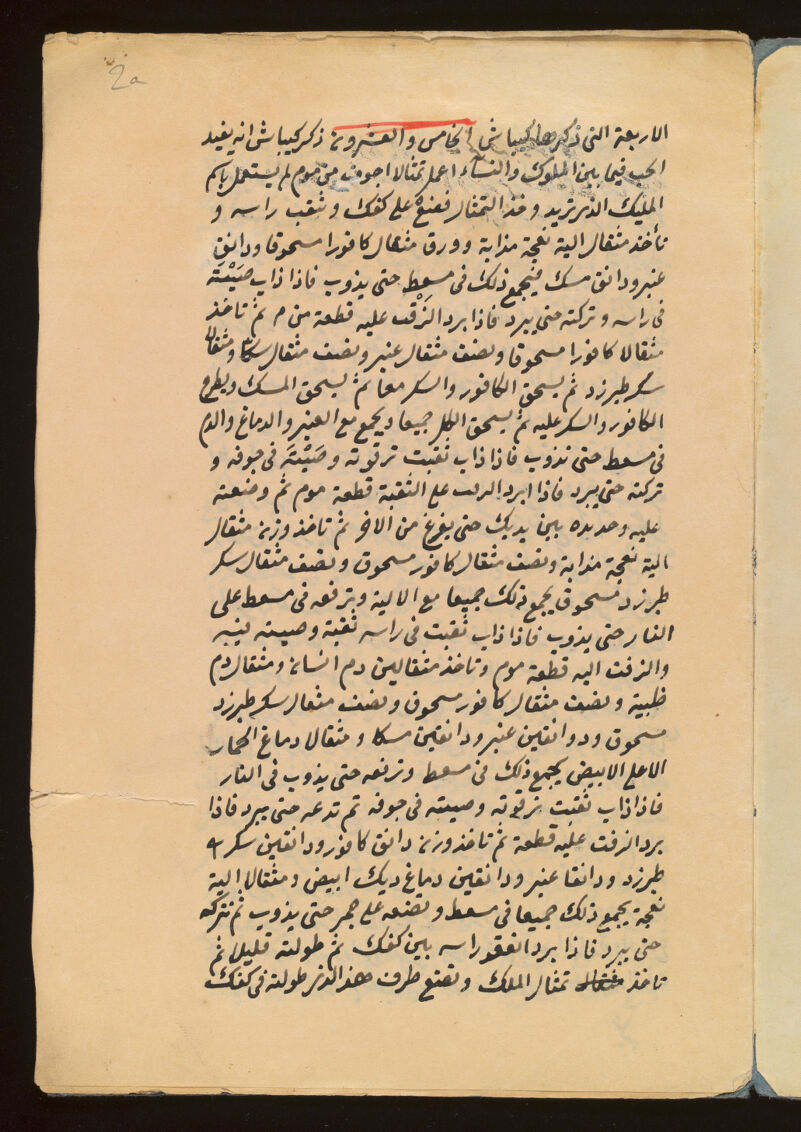 2a
الاربعة التى ذكرها كيباش الخامس والعشرون ذكر كيباش انه يفيد
الحب فيما بين الملوك والنساء اعمل تمثالا اجوف من موم لم يستعمل باسم
المليك الذى تريد وخذ التمثال فضعه على كفك وثقب راسه و
تأخذ مثقال الية نعجة مذابة وورق مثقال كافورا مسحوقا ودانق
عنبر ودانق مسك فيجمع ذلك فى مسعط حتى يذوب فاذا ذاب صَبَبْتَه
فى راسه وتركته حتى يبرد فاذا برد الزقت عليه قطعة من م ثم تاخذ
مثقالا كافورا مسحوقا ونصف مثقال عنبر ونصف مثقال مسكا ومثقال
سكر طبرزد ثم يسحق الكافور والسكر معا ثم يسحق المسك ويطرح
الكافور والسكر عليه ثم يسحق الكل جميعا ويجمع مع العنبر والدماغ والدم
فى مسعط حتى تذوب فاذا ذاب ثقبت ترقوته وصَبَبْتَه فى جوفه و
تركته حتى يبرد فاذا ابرد على الثقبة قطعة موم ثم وضعته
عليه وحديده بين يديك حتى يفرغ من الاخر ثم تاخذ وزن مثقال
الية نعجة مذابة ونصف مثقال كافور مسحوق ونصف مثقال سكر
طبرزد مسحوق يجمع ذلك جميعا مع الالية وترفعه فى مسعط على
النار حتى يذوب فاذا ذاب ثقبت فى راسه ثقبة وصببته فيه
والزقت اليه قطعة موم وتاخذ مثقالين دم انسان ومثقال دم
ظبية ونصف مثقال كافور مسحوق ونصف مثقال سكر طبرزد
مسحوق ودوانقين عنبر ودانقين مسكا ومثقالا دماغ الحمار
الاعلى الابيض يجمع ذلك فى مسعط وترفعه حتى يذوب فى النار
فاذا ذاب ثقبت ترقوته وصببته فى جوفه ثم تدعه حتى يبرد فاذا
برد الزقت عليه قطعة ثم تاخذ وزن دانق كافور ودانقين سكر
طبرزد ودانقا عنبر ودانقين دماغ ديك ابيض ومثقالا الية
نعجة يجمع ذلك جميعا فى مسعط وتضعه على جمر حتى يذوب ثم تتركه
حتى يبرد فاذا برد راسه بين كفك ثم طولته قليلا ثم
تاخذ تمثال الملك وتضع طرف هذا الذى طولته فى كفك